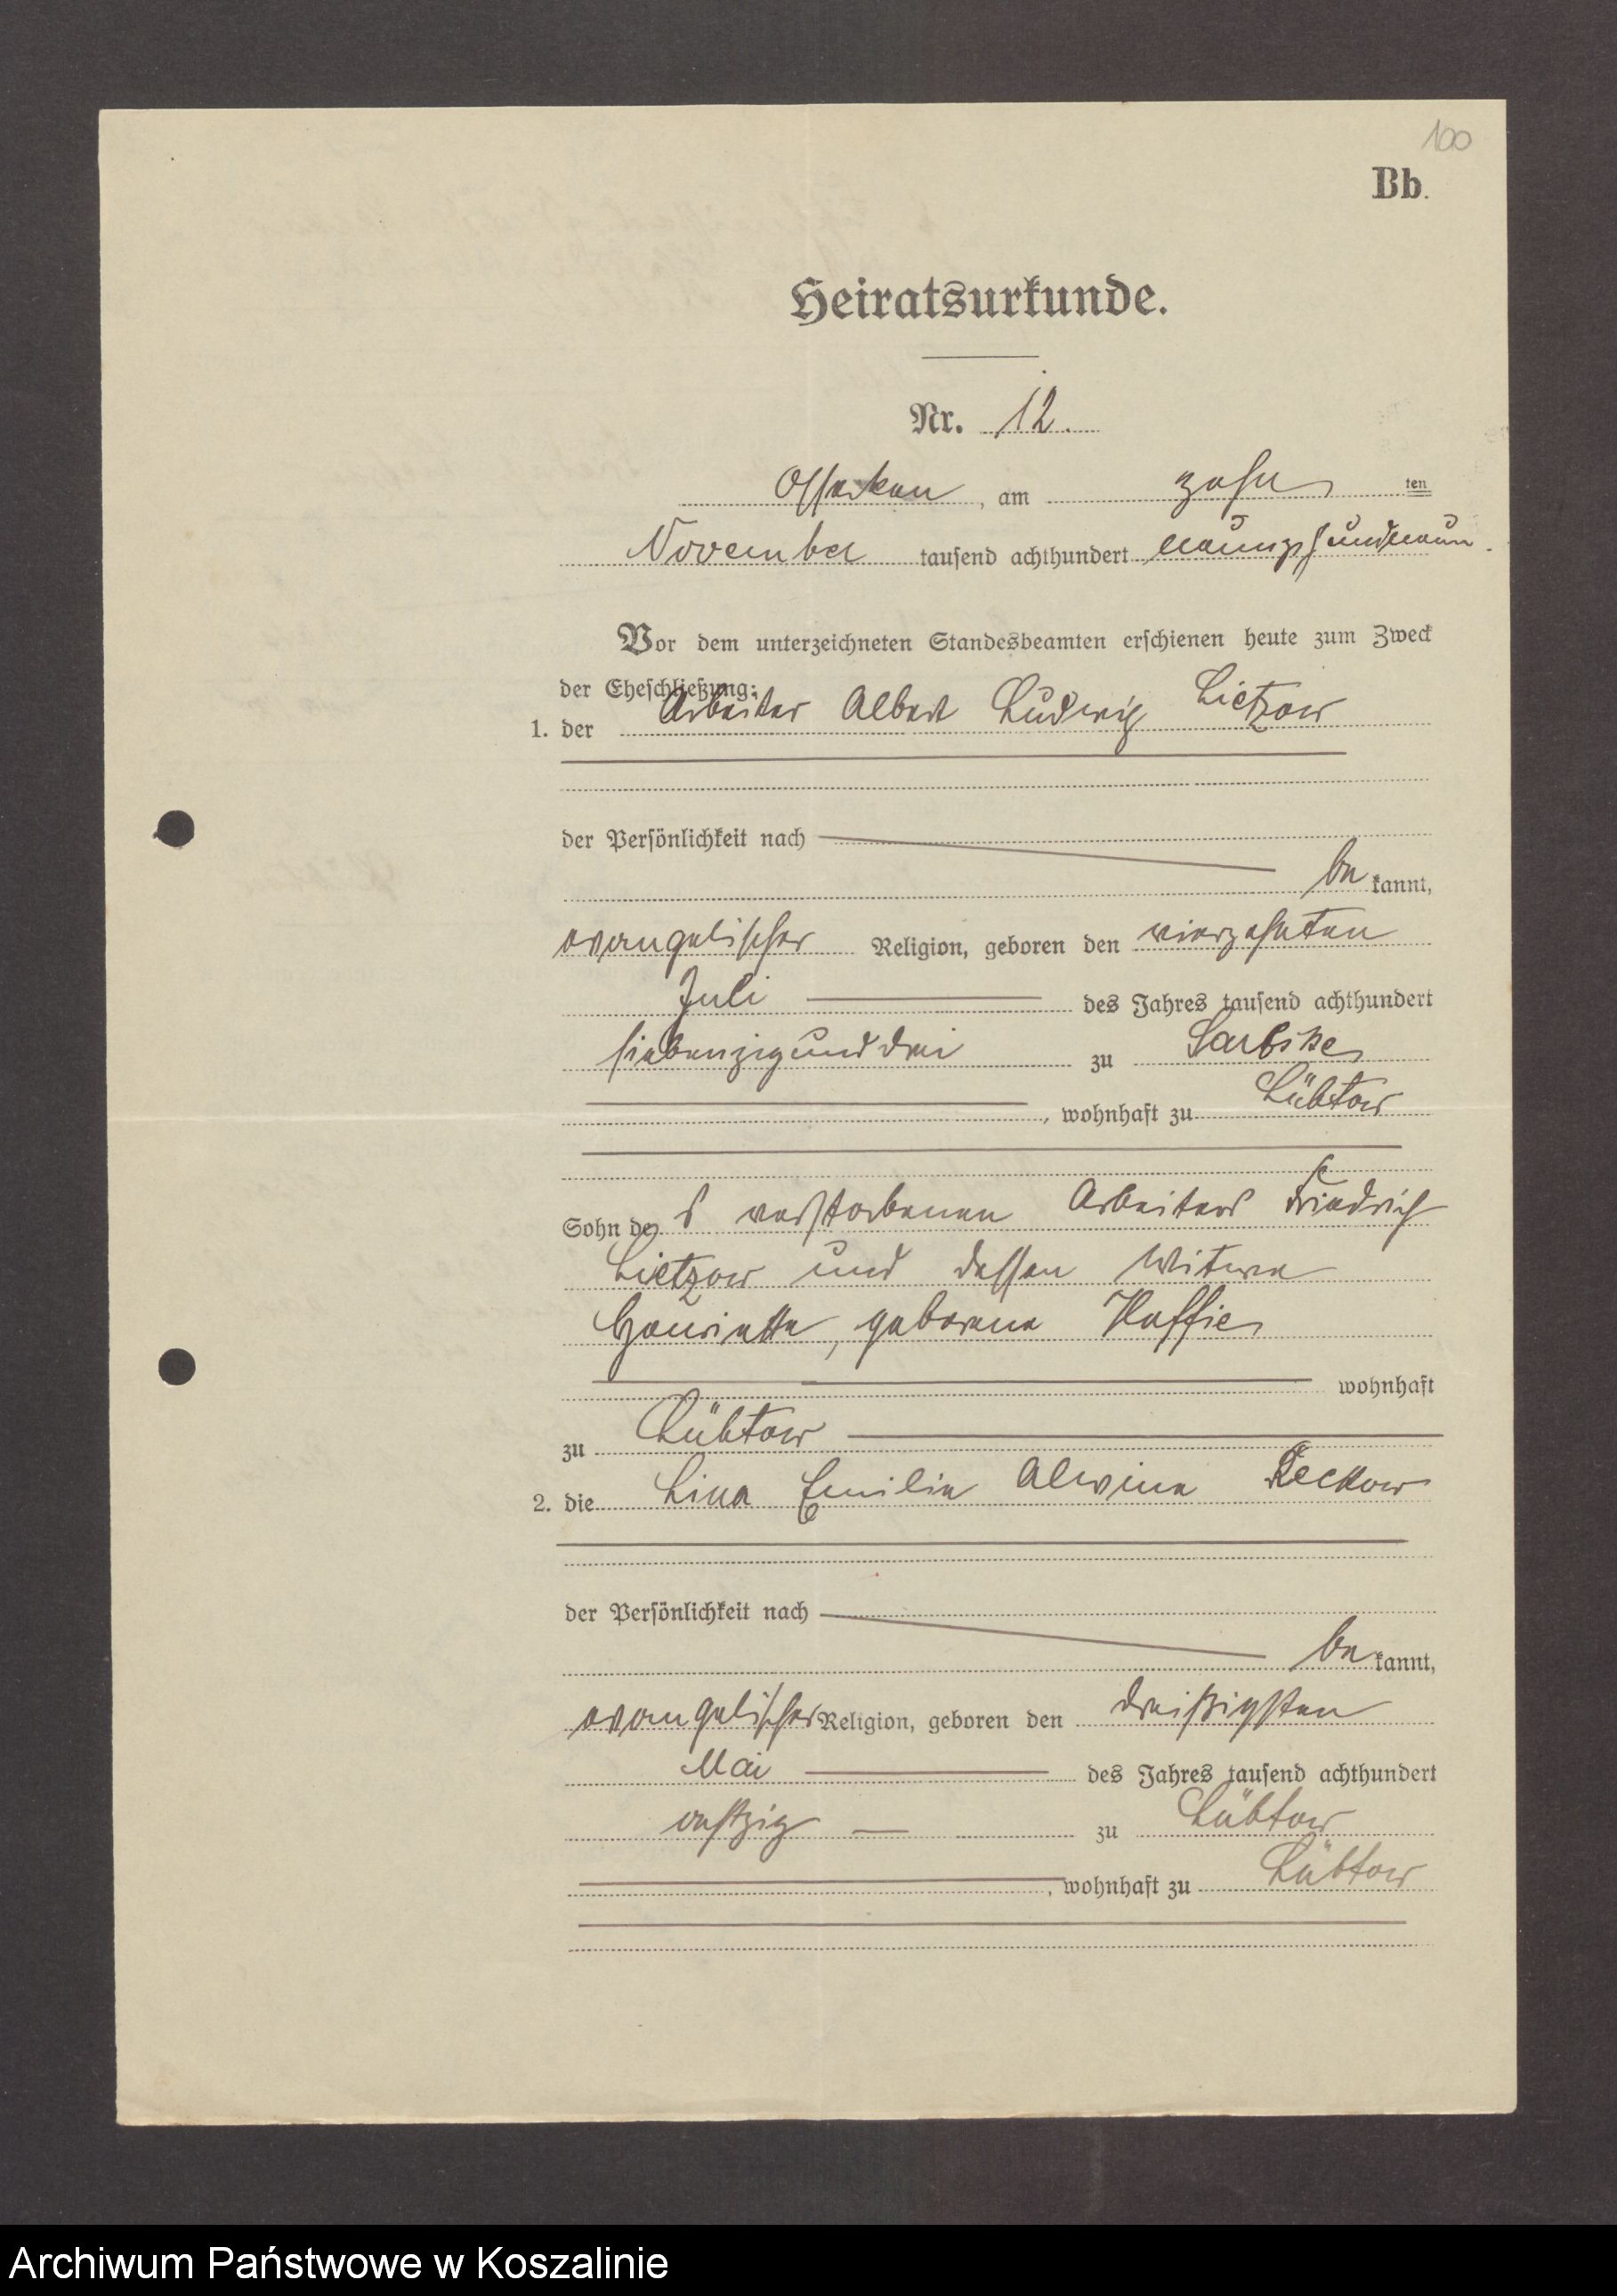 100
Bb.
Heiratsurkunde.
Nr. 12.
Ossecken, am zehnten
November tausend achthundert neunzig und neun.
Vor dem unterzeichneten Standesbeamten erschienen heute zum Zweck
der Eheschließung:
1. der Arbeiter Albert Ludwig Lietzow
der Persönlichkeit nach
bekannt,
evangelischer Religion, geboren den vierzehnten
Juli des Jahres tausend achthundert
siebenzig und drei zu Sarbske
, wohnhaft zu Lübtow
Sohn des verstorbenen Arbeiters Friedrich
Lietzow und dessen Witwe
Henriette, geborene
wohnhaft
zu Lübtow
2. die Lina Emilie Alwine Reckow
der Persönlichkeit nach
bekannt,
evangelischer Religion, geboren den dreißigsten
Mai des Jahres tausend achthundert
achtzig zu Lübtow
, wohnhaft zu Lübtow
Archiwum Państwowe w Koszalinie